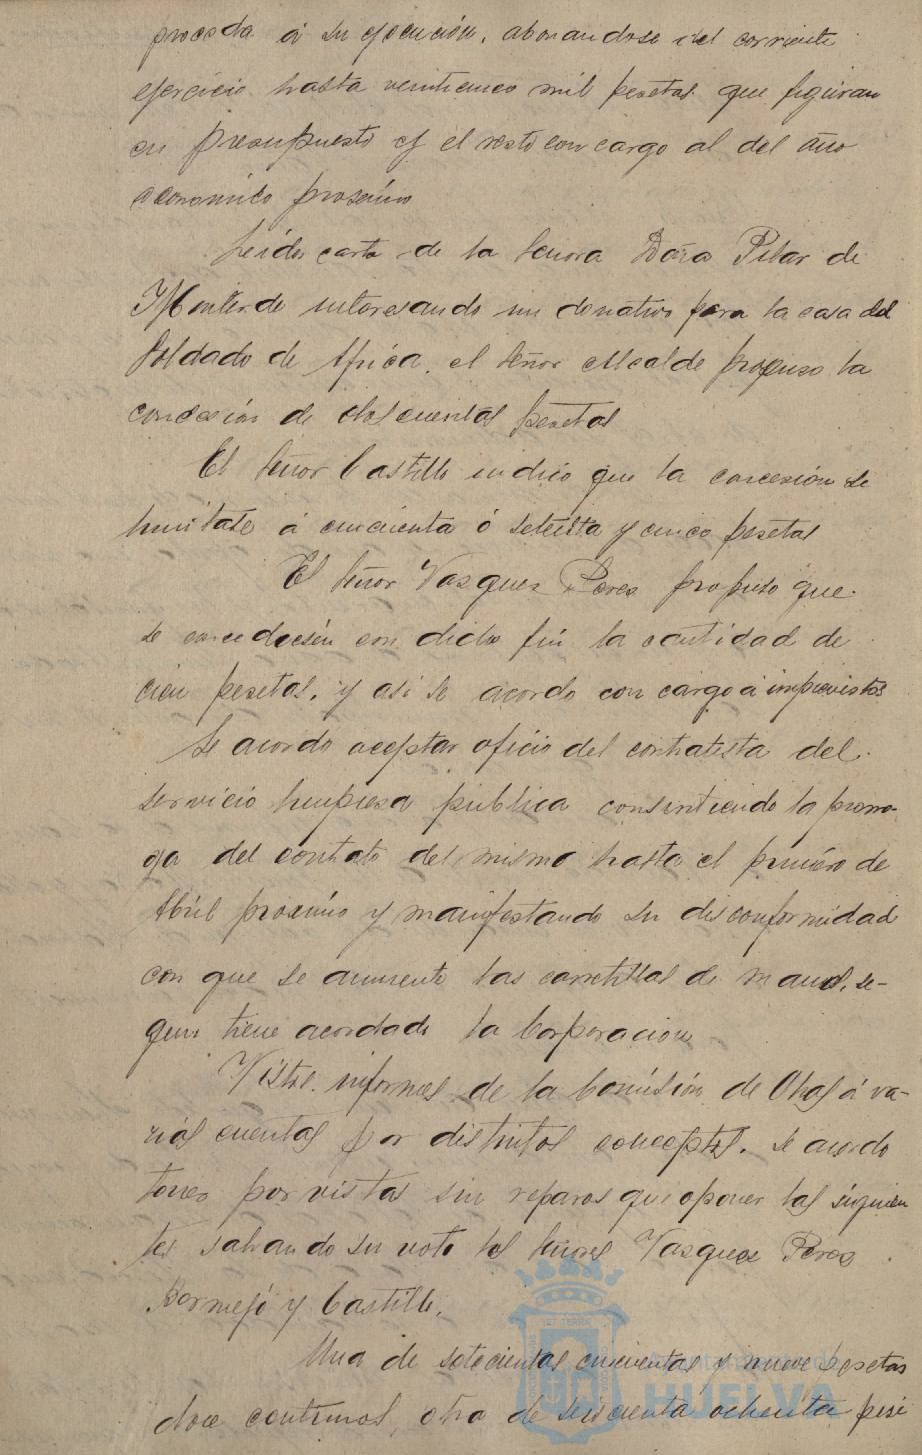 proceda á su ejecución, abonandose del corriente
ejercicio hasta veinticinco mil pesetas que figuran
en presupuesto y el resto con cargo al del año
economico proximo
Leida carta de la Señora Doña Pilar de
Monterde interesando un donativo para la casa del
Soldado de Africa, el Señor Alcalde propuso la
concesion de doscientas pesetas
El Señor Castillo indico que la concesión se
limitase á cincuenta ó setenta y cinco pesetas
El Señor Vasquez Perez propuso que
se concediesen con dicho fin la cantidad de
cien pesetas, y asi se acordo con cargo á imprevistos
Se acordo aceptar oficio del contratista del
servicio limpieza publica consintiendo la prorro-
ga del contrato del mismo hasta el primero de
Abril proximo y manifestando su disconformidad
con que se aumente las carretillas de mano, se-
gun tiene acordado la Corporacion
Vistos informes de la Comisión de Obras á va-
rias cuentas por distintos conceptos, se acordo
tener por vistas sin reparos que oponer las siguien
tes salvando su voto los Señores Vasquez Perez
Bermejo y Castillo,
Una de setecientas cincuenta y nueve pesetas
doce centimos, otra de seiscienta ochenta pese
Ayuntamiento de
HUELVA